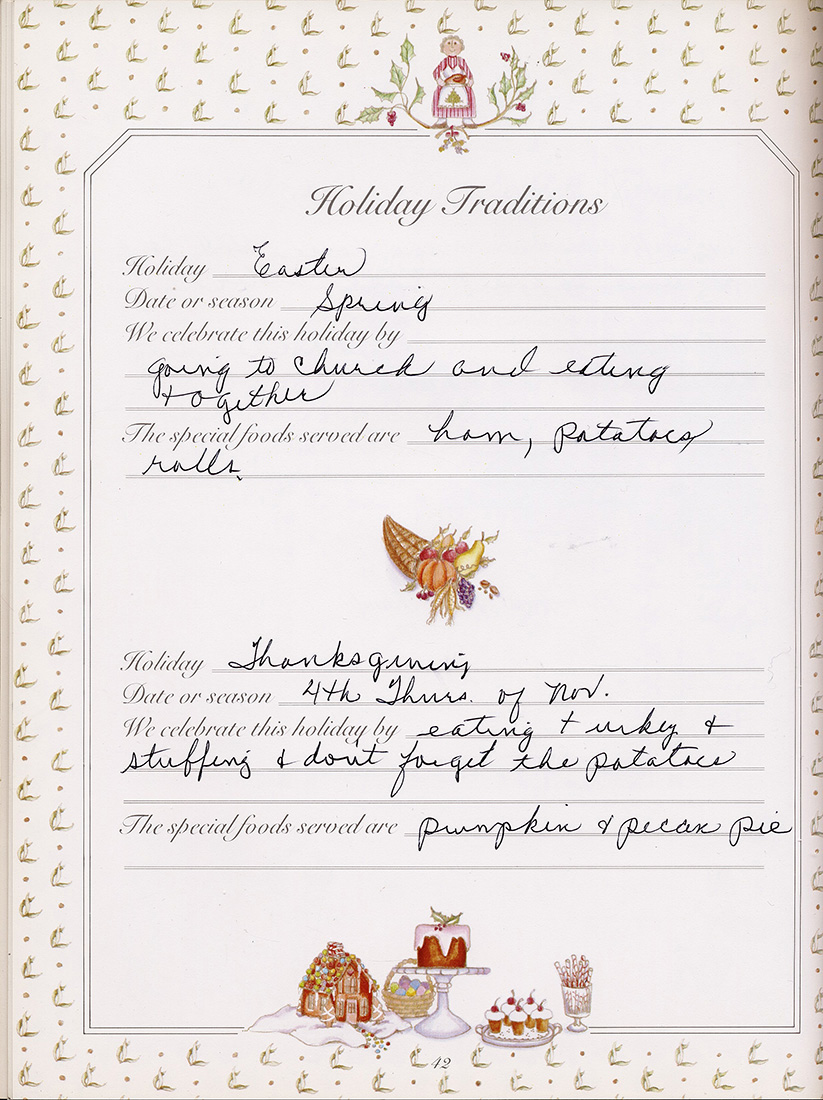 Holiday Traditions
Holiday Easter
Date or season Spring
We celebrate this holiday by
going to church and eating
together
The special foods served are ham, potatoes
rolls.
Holiday Thanksgiving
Date or season 4th Thurs. of Nov.
We celebrate this holiday by eating turkey &
stuffing & don't forget the potatoes
The special foods served are pumpkin & pecan pie
42